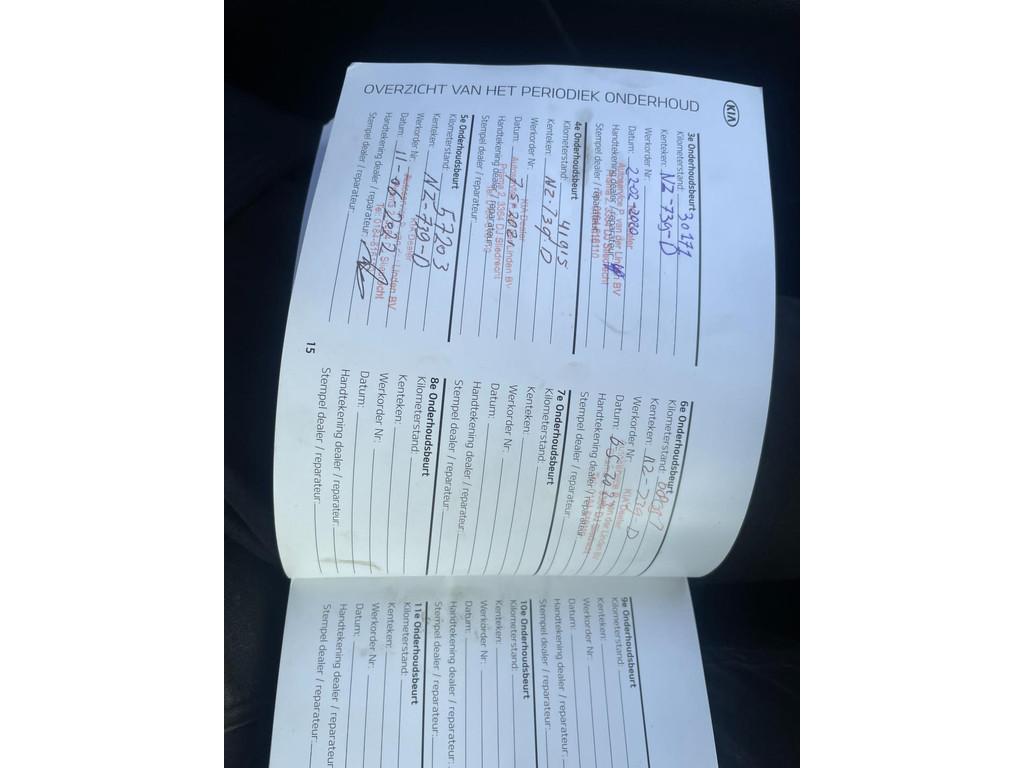 KIA
OVERZICHT VAN HET PERIODIEK ONDERHOUD
3e Onderhoudsbeurt
Kilometerstand: 30171
Kenteken: NZ-739-D
Werkorder Nr:
Datum: 22-02-2020
Handtekening dealer / reparateur:
Stempel dealer / reparateur:
Autoservice P. van der Linden BV
Prisma 2, 3364 DJ Sliedrecht
4e Onderhoudsbeurt
Kilometerstand: 41915
Kenteken: NZ-739-D
Werkorder Nr:
Datum: 7-5-2021
Handtekening dealer / reparateur:
Stempel dealer / reparateur:
KIA Dealer
Linden BV
Prisma 2, 3364 DJ Sliedrecht
5e Onderhoudsbeurt
Kilometerstand: 57203
Kenteken: NZ-739-D
Werkorder Nr:
Datum: 2022
Handtekening dealer / reparateur:
Stempel dealer / reparateur:
KIA Dealer
Linden BV
Sliedrecht
15
6e Onderhoudsbeurt
Kilometerstand:
Kenteken: NZ-739-D
Werkorder Nr:
Datum:
Handtekening dealer / reparateur:
Stempel dealer / reparateur:
KIA Dealer
van der Linden BV
7e Onderhoudsbeurt
Kilometerstand:
Kenteken:
Werkorder Nr:
Datum:
Handtekening dealer / reparateur:
Stempel dealer / reparateur:
8e Onderhoudsbeurt
Kilometerstand:
Kenteken:
Werkorder Nr:
Datum:
Handtekening dealer / reparateur:
Stempel dealer / reparateur:
9e Onderhoudsbeurt
Kilometerstand:
Kenteken:
Werkorder Nr:
Datum:
Handtekening dealer / reparateur:
Stempel dealer / reparateur:
10e Onderhoudsbeurt
Kilometerstand:
Kenteken:
Werkorder Nr:
Datum:
Handtekening dealer / reparateur:
Stempel dealer / reparateur:
11e Onderhoudsbeurt
Kilometerstand:
Kenteken:
Werkorder Nr:
Datum:
Handtekening dealer / reparateur:
Stempel dealer / reparateur: